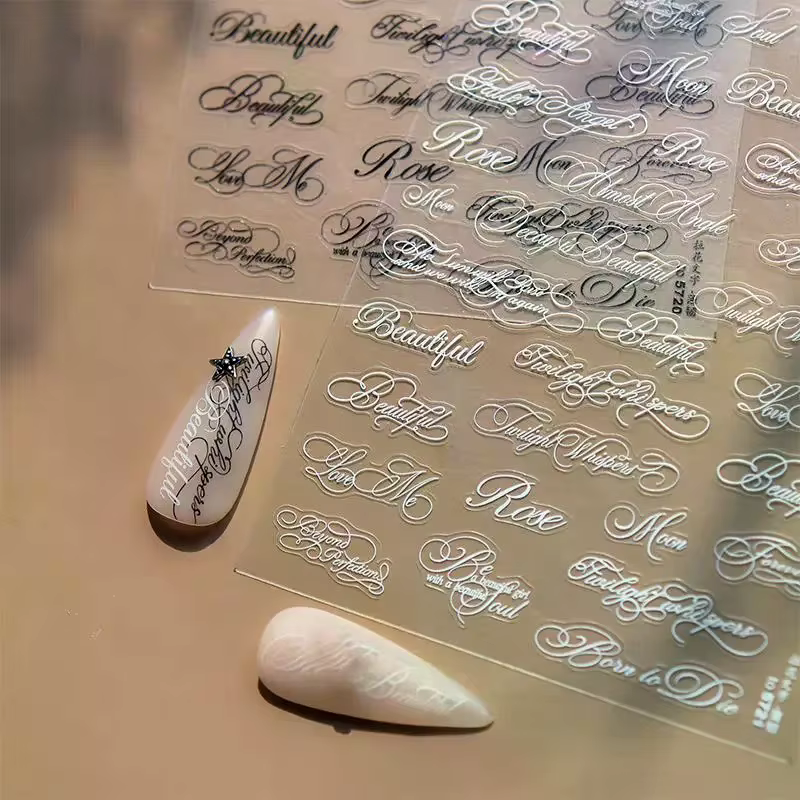 Beautiful
Twilight whispers
Beautiful
Twilight Whispers
Love Me
Rose
Moon
Forever
Beyond
Perfection
with a beautiful
Born to Die
5720
Beautiful
Love
Soul
Moon
Fallen Angel
Rose
Rose
Almost Angle
Moon
Decay is Beautiful
and we will try again
Beautiful
Beautiful
Twilight whispers
Twilight W
Beautiful
Twilight Whispers
Love
Love Me
Rose
Moon
Forever
Beyond
Perfection
Be
a beautiful girl
with a beautiful
Soul
Twilight whispers
Born to Die
5721
Twilight whispers
Beautiful